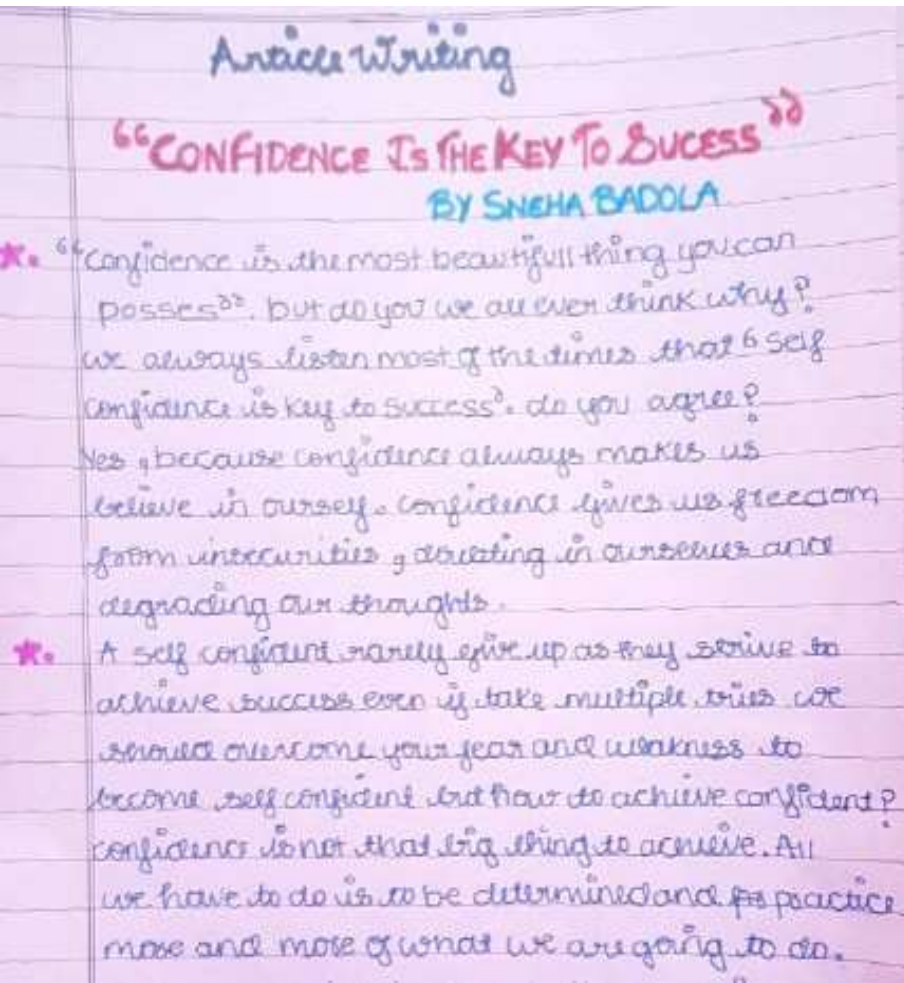 Article Writing
“CONFIDENCE IS THE KEY TO SUCESS”
BY SNEHA BADOLA
“Confidence is the most beautifull thing you can
posses”. but do you we all ever think why?
we always listen most of the times that ‘self
confidence is key to success’. do you agree?
Yes, because confidence always makes us
believe in ourself. confidence gives us freedom
from insecurities, doubting in ourselves and
degrading our thoughts.
A self confident rarely give up as they strive to
achieve success even if take multiple tries we
should overcome your fear and weakness to
become self confident but how to achieve confident?
confidence is not that big thing to achieve. All
we have to do is to be determined and practice
more and more of what we are going to do.